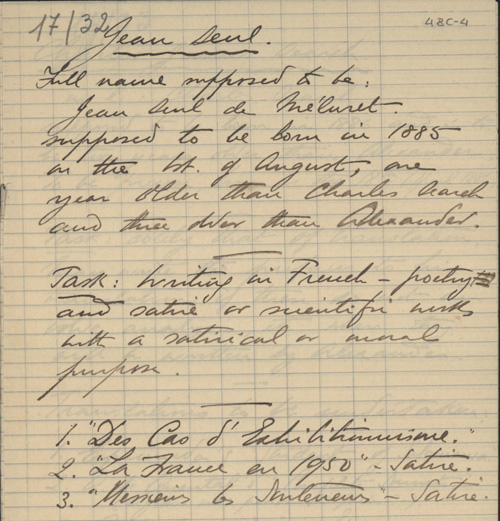 17/32
48C-4
Jean Seul.
Full name supposed to be:
Jean Seul de Méluret.
supposed to be born in 1885
on the 1st. of August, one
year older than Charles Search
and three older than Alexander.
Task: writing in French – poetry
and satire or scientific works
with a satirical or moral
purpose.
1. "Des Cas d'Exhibitionnisme."
2. "La France en 1950" – Satire.
3. "Messieurs les Souteneurs" – Satire.